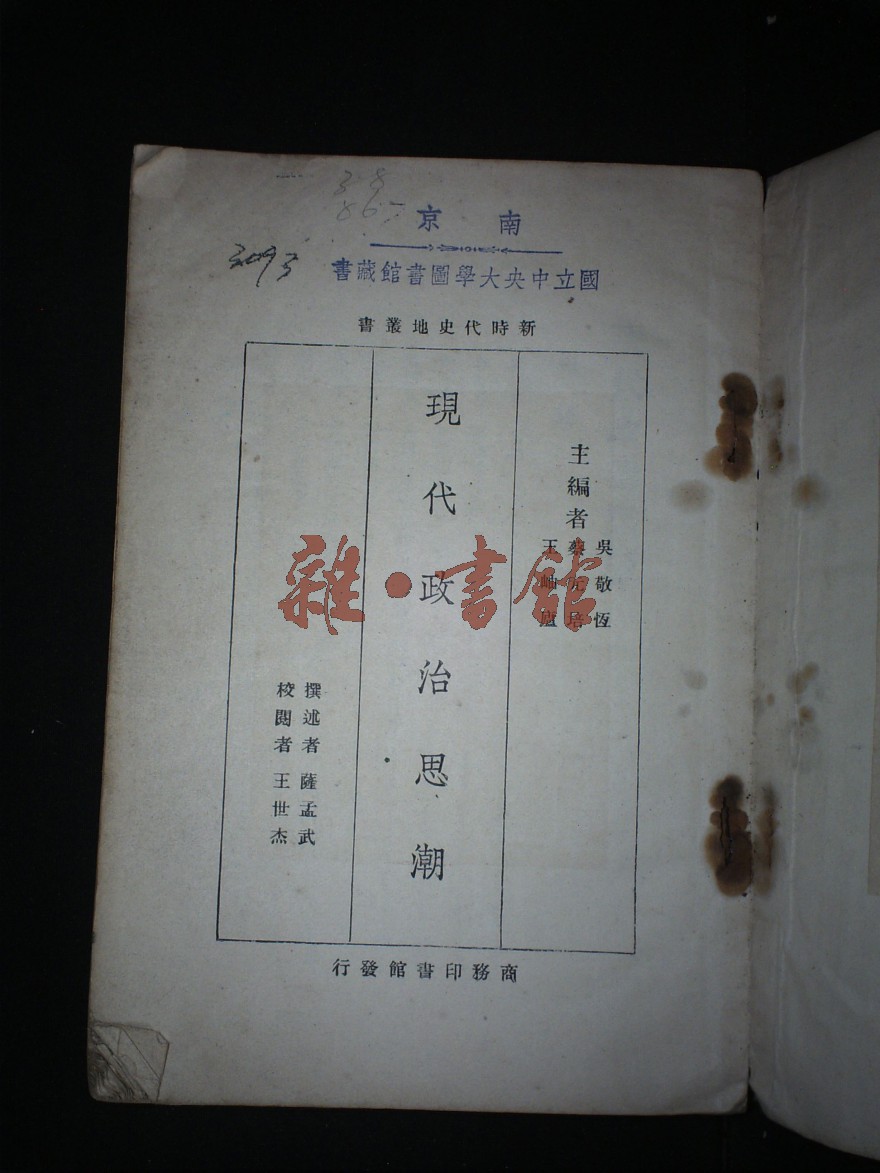 南京
國立中央大學圖書館藏書
新時代史地叢書
主編者
吳敬恆
蔡元培
王岫廬
現代政治思潮
撰述者 薩孟武
校閱者 王世杰
商務印書館發行
雜·書館